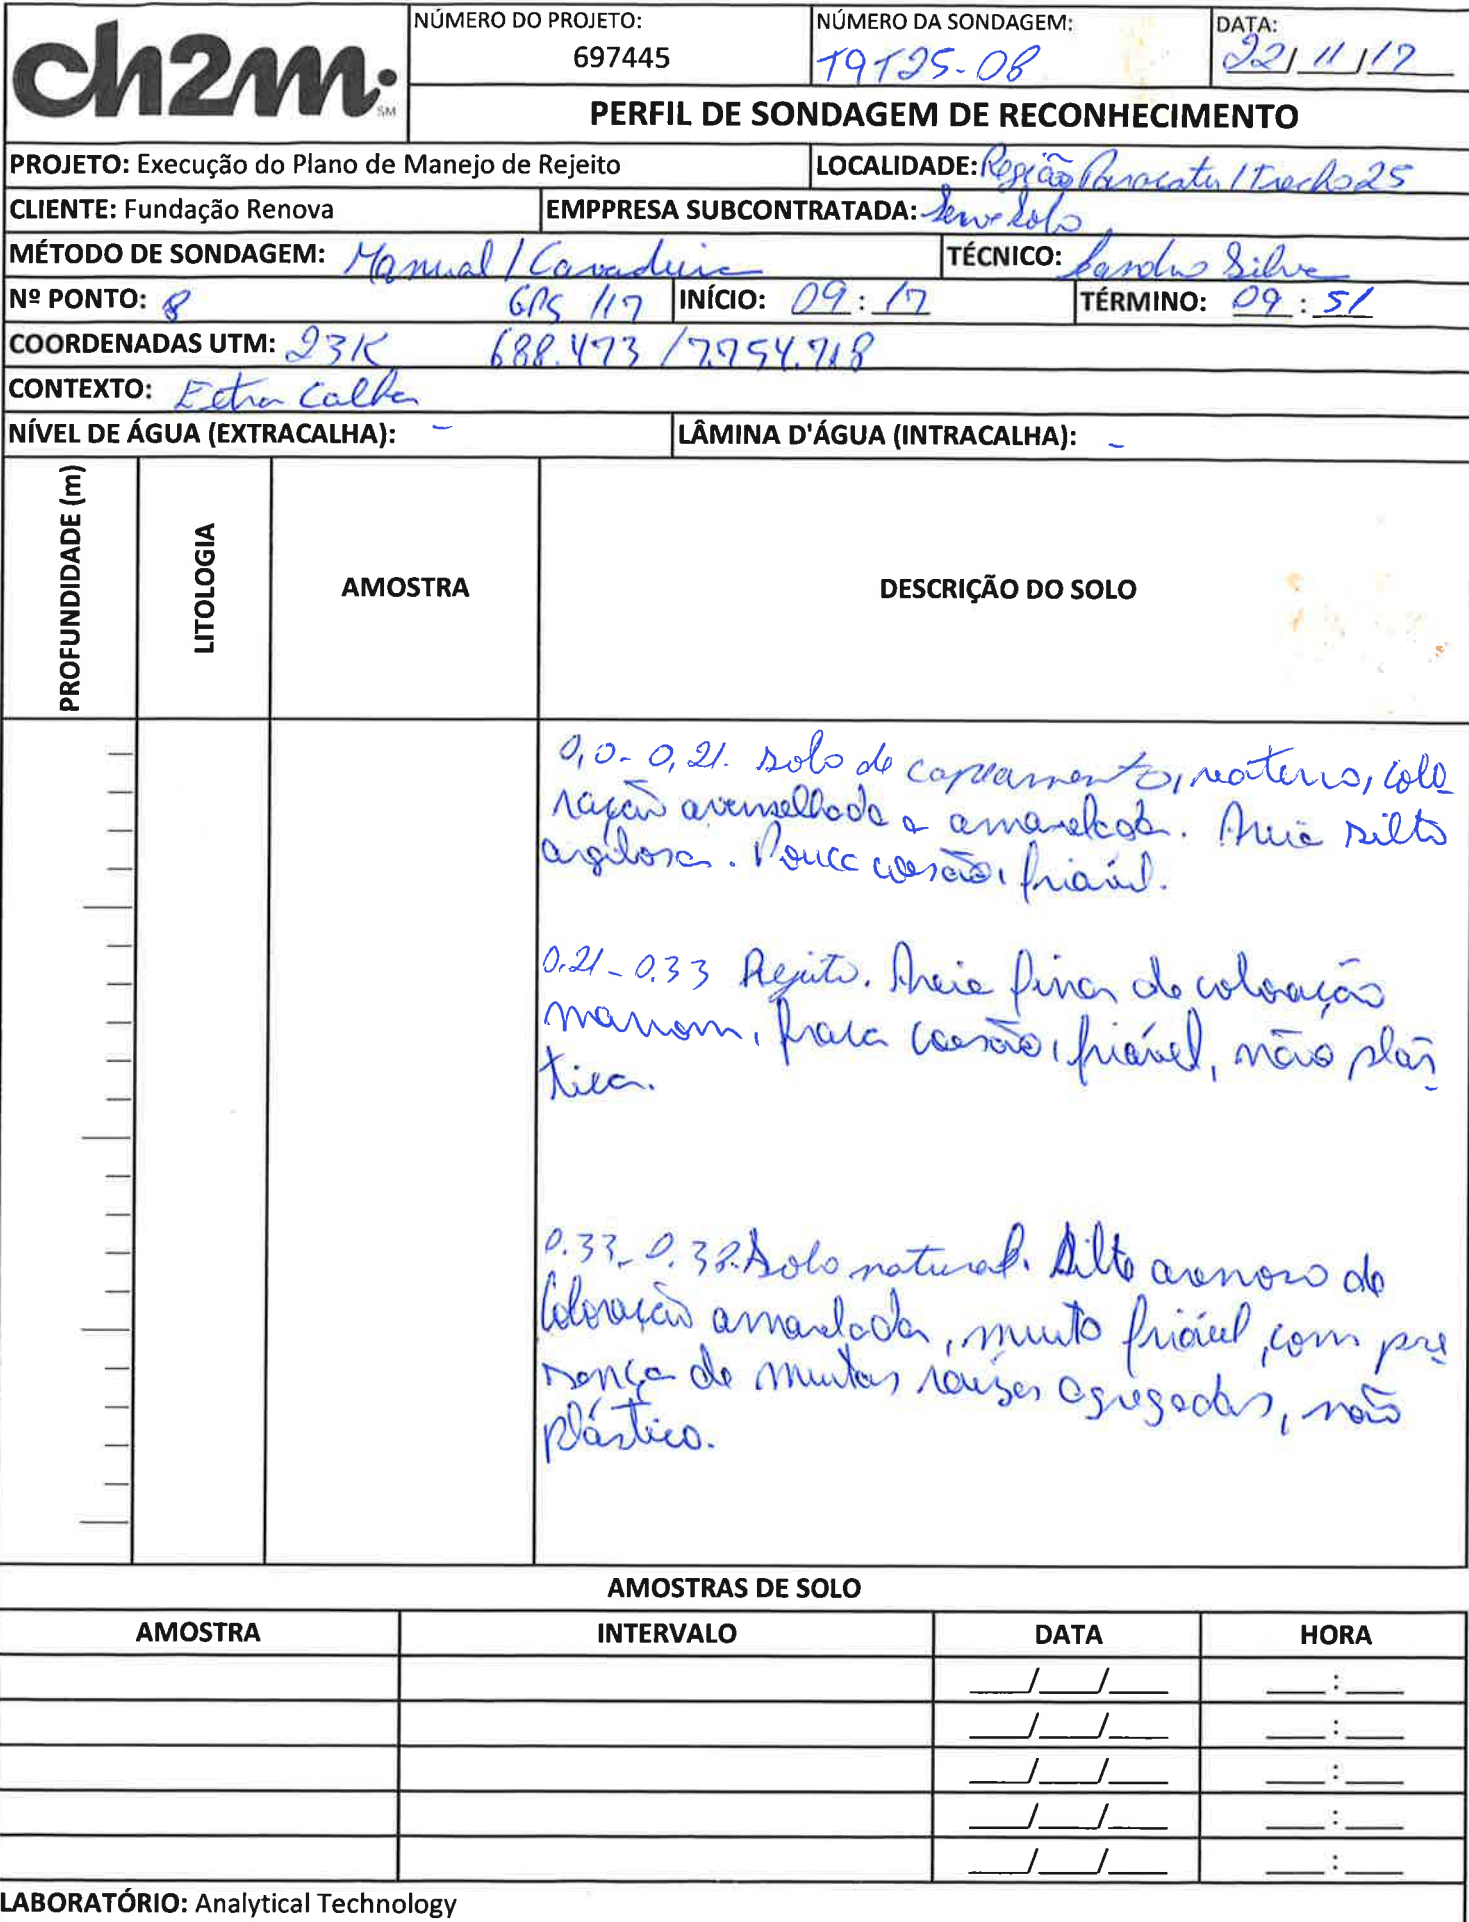 ch2m:
SM
NÚMERO DO PROJETO:
697445
NÚMERO DA SONDAGEM:
T9T25-08
DATA:
22/11/17
PERFIL DE SONDAGEM DE RECONHECIMENTO
PROJETO: Execução do Plano de Manejo de Rejeito
LOCALIDADE: Região Paracatu / Trecho 25
CLIENTE: Fundação Renova
EMPPRESA SUBCONTRATADA: Serv Solo
MÉTODO DE SONDAGEM: Manual / Cavadeira
TÉCNICO: Sandro Silva
Nº PONTO: 8 GPS 117
INÍCIO: 09:17
TÉRMINO: 09:51
COORDENADAS UTM: 23K 688.473 / 7.754.718
CONTEXTO: Extra Calha
NÍVEL DE ÁGUA (EXTRACALHA): -
LÂMINA D'ÁGUA (INTRACALHA): -
PROFUNDIDADE (m)
LITOLOGIA
AMOSTRA
DESCRIÇÃO DO SOLO
0,0-0,21. Solo de capeamento, reaterro, colo
ração avermelhada a amarelada. Areia silto
argilosa. Pouca coesão, friável.
0.21-0.33 Rejeito. Areia fina de coloração
marrom, fraca coesão, friável, não plás
tica.
0.33-0.38. Solo natural. Silto arenoso de
Coloração amarelada, muito friável, com pre
sença de muitas raízes agregadas, não
plástico.
AMOSTRAS DE SOLO
AMOSTRA INTERVALO DATA HORA
___/___/___ ___:___
___/___/___ ___:___
___/___/___ ___:___
___/___/___ ___:___
___/___/___ ___:___
LABORATÓRIO: Analytical Technology